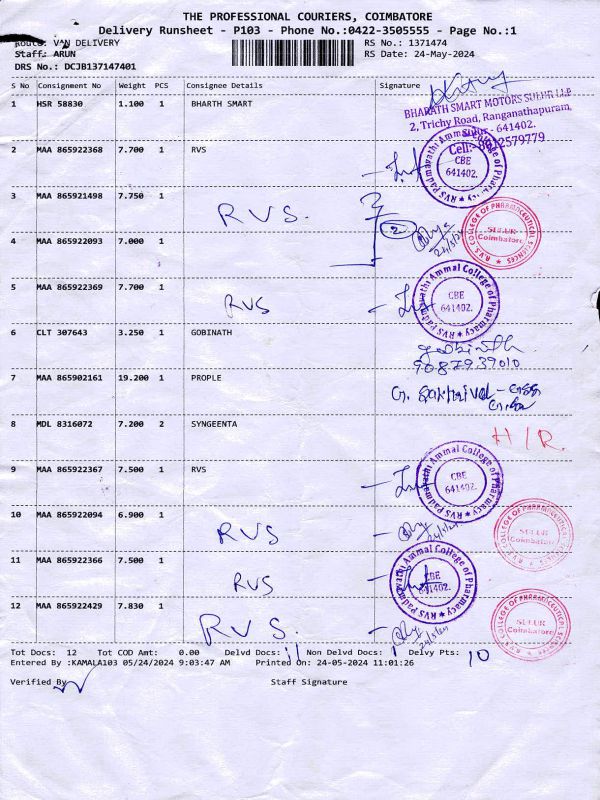 THE PROFESSIONAL COURIERS, COIMBATORE
Delivery Runsheet - P103 - Phone No.:0422-3505555 - Page No.:1
Route: VAN DELIVERY
RS No.: 1371474
Staff: ARUN
RS Date: 24-May-2024
DRS No.: DCJB137147401
S No Consignment No Weight PCS Consignee Details Signature
1 HSR 58830 1.100 1 BHARTH SMART
BHARATH SMART MOTORS SULUR LLP
2, Trichy Road, Ranganathapuram,
Sulur - 641402.
2 MAA 865922368 7.700 1 RVS
RVS Padmavathi Ammal College of Pharmacy
CBE
641402.
3 MAA 865921498 7.750 1 RVS.
2
24/5/24
R.V.S. COLLEGE OF PHARMACEUTICAL SCIENCES
SULUR
Coimbatore
4 MAA 865922093 7.000 1
5 MAA 865922369 7.700 1 RVS
RVS Padmavathi Ammal College of Pharmacy
CBE
641402.
6 CLT 307643 3.250 1 GOBINATH
9087939010
7 MAA 865902161 19.200 1 PROPLE
8 MDL 8316072 7.200 2 SYNGEENTA H/R.
9 MAA 865922367 7.500 1 RVS
RVS Padmavathi Ammal College of Pharmacy
CBE
641402.
10 MAA 865922094 6.900 1 RVS
24/5/24
R.V.S. COLLEGE OF PHARMACEUTICAL SCIENCES
SULUR
Coimbatore
11 MAA 865922366 7.500 1 RVS
RVS Padmavathi Ammal College of Pharmacy
CBE
641402.
12 MAA 865922429 7.830 1 RVS.
24/5/24
R.V.S. COLLEGE OF PHARMACEUTICAL SCIENCES
SULUR
Coimbatore
Tot Docs: 12 Tot COD Amt: 0.00 Delvd Docs: 11 Non Delvd Docs: 1 Delvy Pts: 10
Entered By :KAMALA103 05/24/2024 9:03:47 AM Printed On: 24-05-2024 11:01:26
Verified By Staff Signature